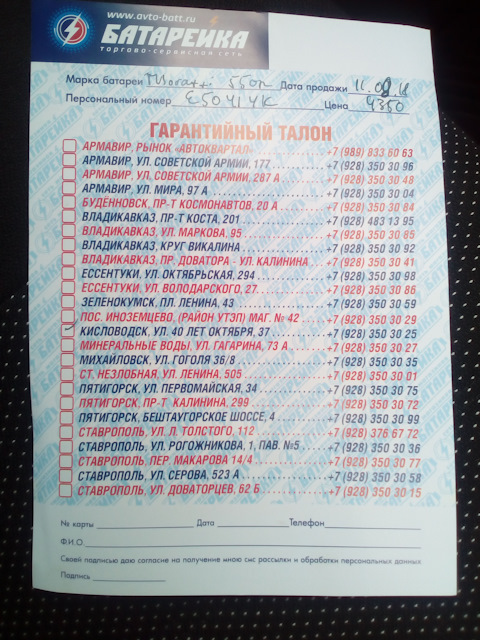 www.avto-batt.ru
БАТАРЕЙКА
ТОРГОВО-СЕРВИСНАЯ СЕТЬ
Марка батареи 55оп Дата продажи
Персональный номер E50414K Цена 4350
ГАРАНТИЙНЫЙ ТАЛОН
АРМАВИР, РЫНОК «АВТОКВАРТАЛ» +7 (989) 833 60 63
АРМАВИР, УЛ. СОВЕТСКОЙ АРМИИ, 177 +7 (928) 350 30 96
АРМАВИР, УЛ. СОВЕТСКОЙ АРМИИ, 287 А +7 (928) 350 30 48
АРМАВИР, УЛ. МИРА, 97 А +7 (928) 350 30 04
БУДЁННОВСК, ПР-Т КОСМОНАВТОВ, 20 А +7 (928) 350 30 84
ВЛАДИКАВКАЗ, ПР-Т КОСТА, 201 +7 (928) 483 13 95
ВЛАДИКАВКАЗ, УЛ. МАРКОВА, 95 +7 (928) 350 30 65
ВЛАДИКАВКАЗ, КРУГ ВИКАЛИНА +7 (928) 350 30 92
ВЛАДИКАВКАЗ, ПР. ДОВАТОРА - УЛ. КАЛИНИНА +7 (928) 350 30 41
ЕССЕНТУКИ, УЛ. ОКТЯБРЬСКАЯ, 294 +7 (928) 350 30 98
ЕССЕНТУКИ, УЛ. ВОЛОДАРСКОГО, 27 +7 (928) 350 30 86
ЗЕЛЕНОКУМСК, ПЛ. ЛЕНИНА, 43 +7 (928) 350 30 59
ПОС. ИНОЗЕМЦЕВО, (РАЙОН УТЭП) МАГ. № 42 +7 (928) 350 30 29
КИСЛОВОДСК, УЛ. 40 ЛЕТ ОКТЯБРЯ, 37 +7 (928) 350 30 25
МИНЕРАЛЬНЫЕ ВОДЫ, УЛ. ГАГАРИНА, 73 А +7 (928) 350 30 27
МИХАЙЛОВСК, УЛ. ГОГОЛЯ 36/8 +7 (928) 350 30 35
СТ. НЕЗЛОБНАЯ, УЛ. ЛЕНИНА, 505 +7 (928) 350 30 01
ПЯТИГОРСК, УЛ. ПЕРВОМАЙСКАЯ, 34 +7 (928) 350 30 75
ПЯТИГОРСК, ПР-Т КАЛИНИНА, 299 +7 (928) 350 30 72
ПЯТИГОРСК, БЕШТАУГОРСКОЕ ШОССЕ, 4 +7 (928) 350 30 99
СТАВРОПОЛЬ, УЛ. Л. ТОЛСТОГО, 112 +7 (928) 376 67 72
СТАВРОПОЛЬ, УЛ. РОГОЖНИКОВА, 1, ПАВ. №5 +7 (928) 350 30 36
СТАВРОПОЛЬ, ПЕР. МАКАРОВА 14/4 +7 (928) 350 30 77
СТАВРОПОЛЬ, УЛ. СЕРОВА, 523 А +7 (928) 350 30 58
СТАВРОПОЛЬ, УЛ. ДОВАТОРЦЕВ, 62 Б +7 (928) 350 30 15
№ карты Дата Телефон
Ф.И.О.
Своей подписью даю согласие на получение мною смс рассылки и обработки персональных данных
Подпись